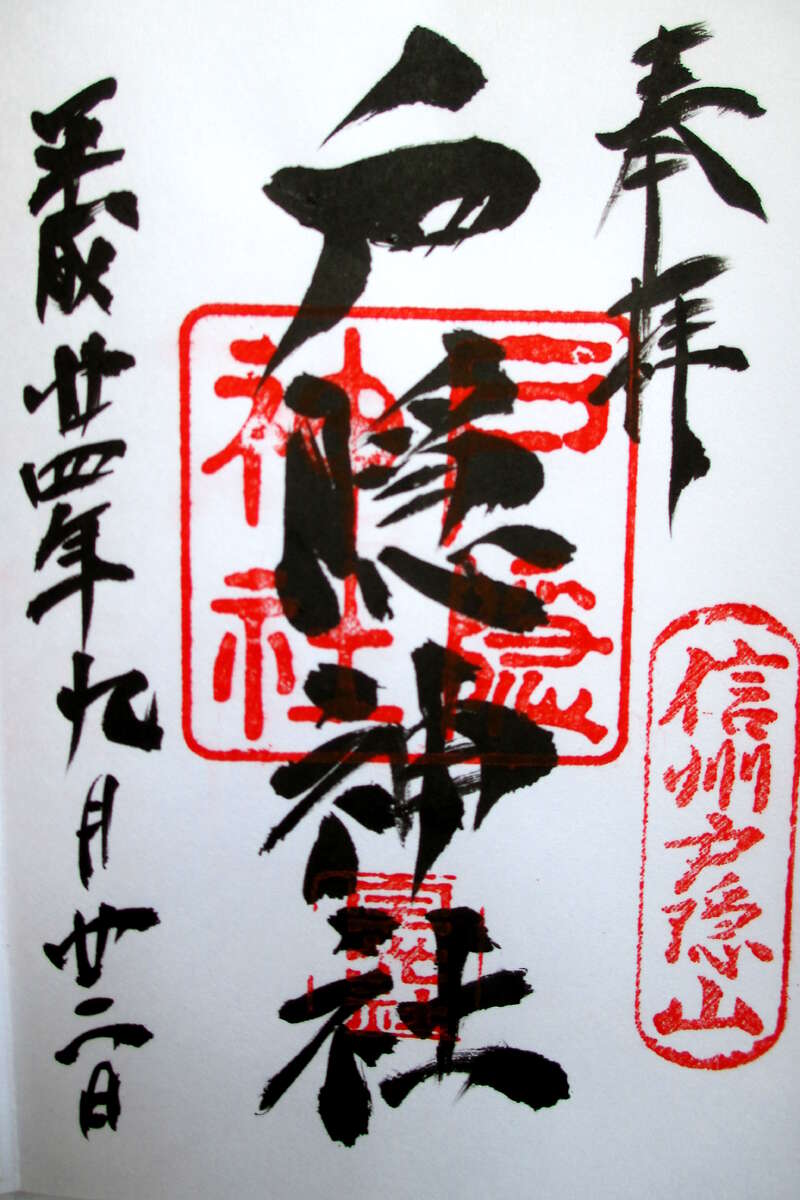 奉拝
信州戸隠山
戸隠神社
戸隠
神社
平成廿四年九月廿二日